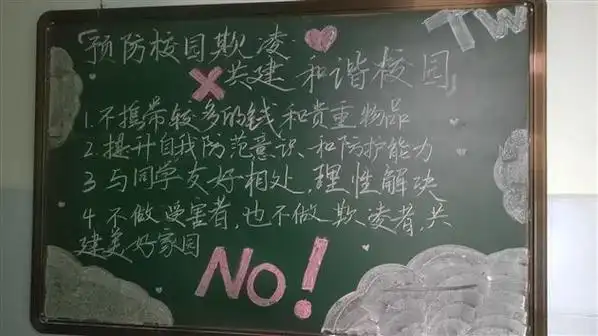 「预防校园欺凌
TW
共建和谐校园」
1.不携带较多的钱和贵重物品
2.提升自我防范意识、和防护能力
3 与同学友好相处,理性解决
4.不做受害者,也不做欺凌者,共
建美好家园
No!